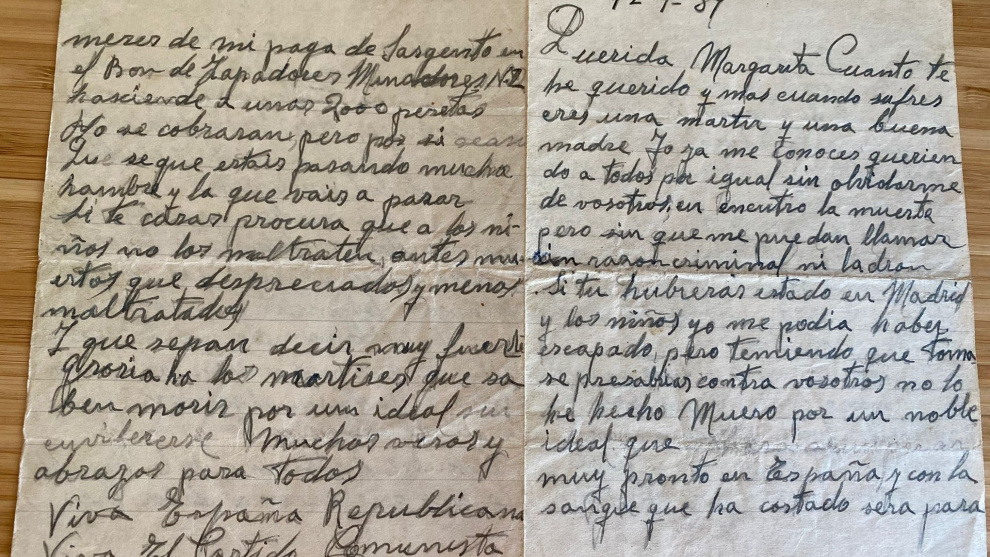 meses de mi paga de Sargento en
el Bon de Zapadores Minadores N.2
hasciende a unas 2000 pesetas
Yo se cobraran, pero por si sean
Que se que estais pasando mucha
hambre y la que vais a pasar
Si te casas procura que a los ni-
ños no los maltraten, antes mu-
ertos que despreciados y menos
maltratados
Y que sepan decir muy fuerte
Gloria ha los martires que sa
ben morir por un ideal sin
Muchos vesos y
abrazos para Todos
Viva España Republicana
Viva El Partido Comunista
Querida Margarita Cuanto te
he querido y mas cuando sufres
eres una martir y una buena
madre Yo ya me conoces querien
do a todos por igual sin olvidarme
de vosotros, en encutro la muerte
pero sin que me puedan llamar
sin razon criminal ni ladron
Si tu hubieras estado en Madrid
y los niños yo me podia haber
escapado, pero temiendo que toma
se presabias contra vosotros no lo
he hecho Muero por un noble
ideal que
muy pronto en España y con la
sangre que ha costado sera para